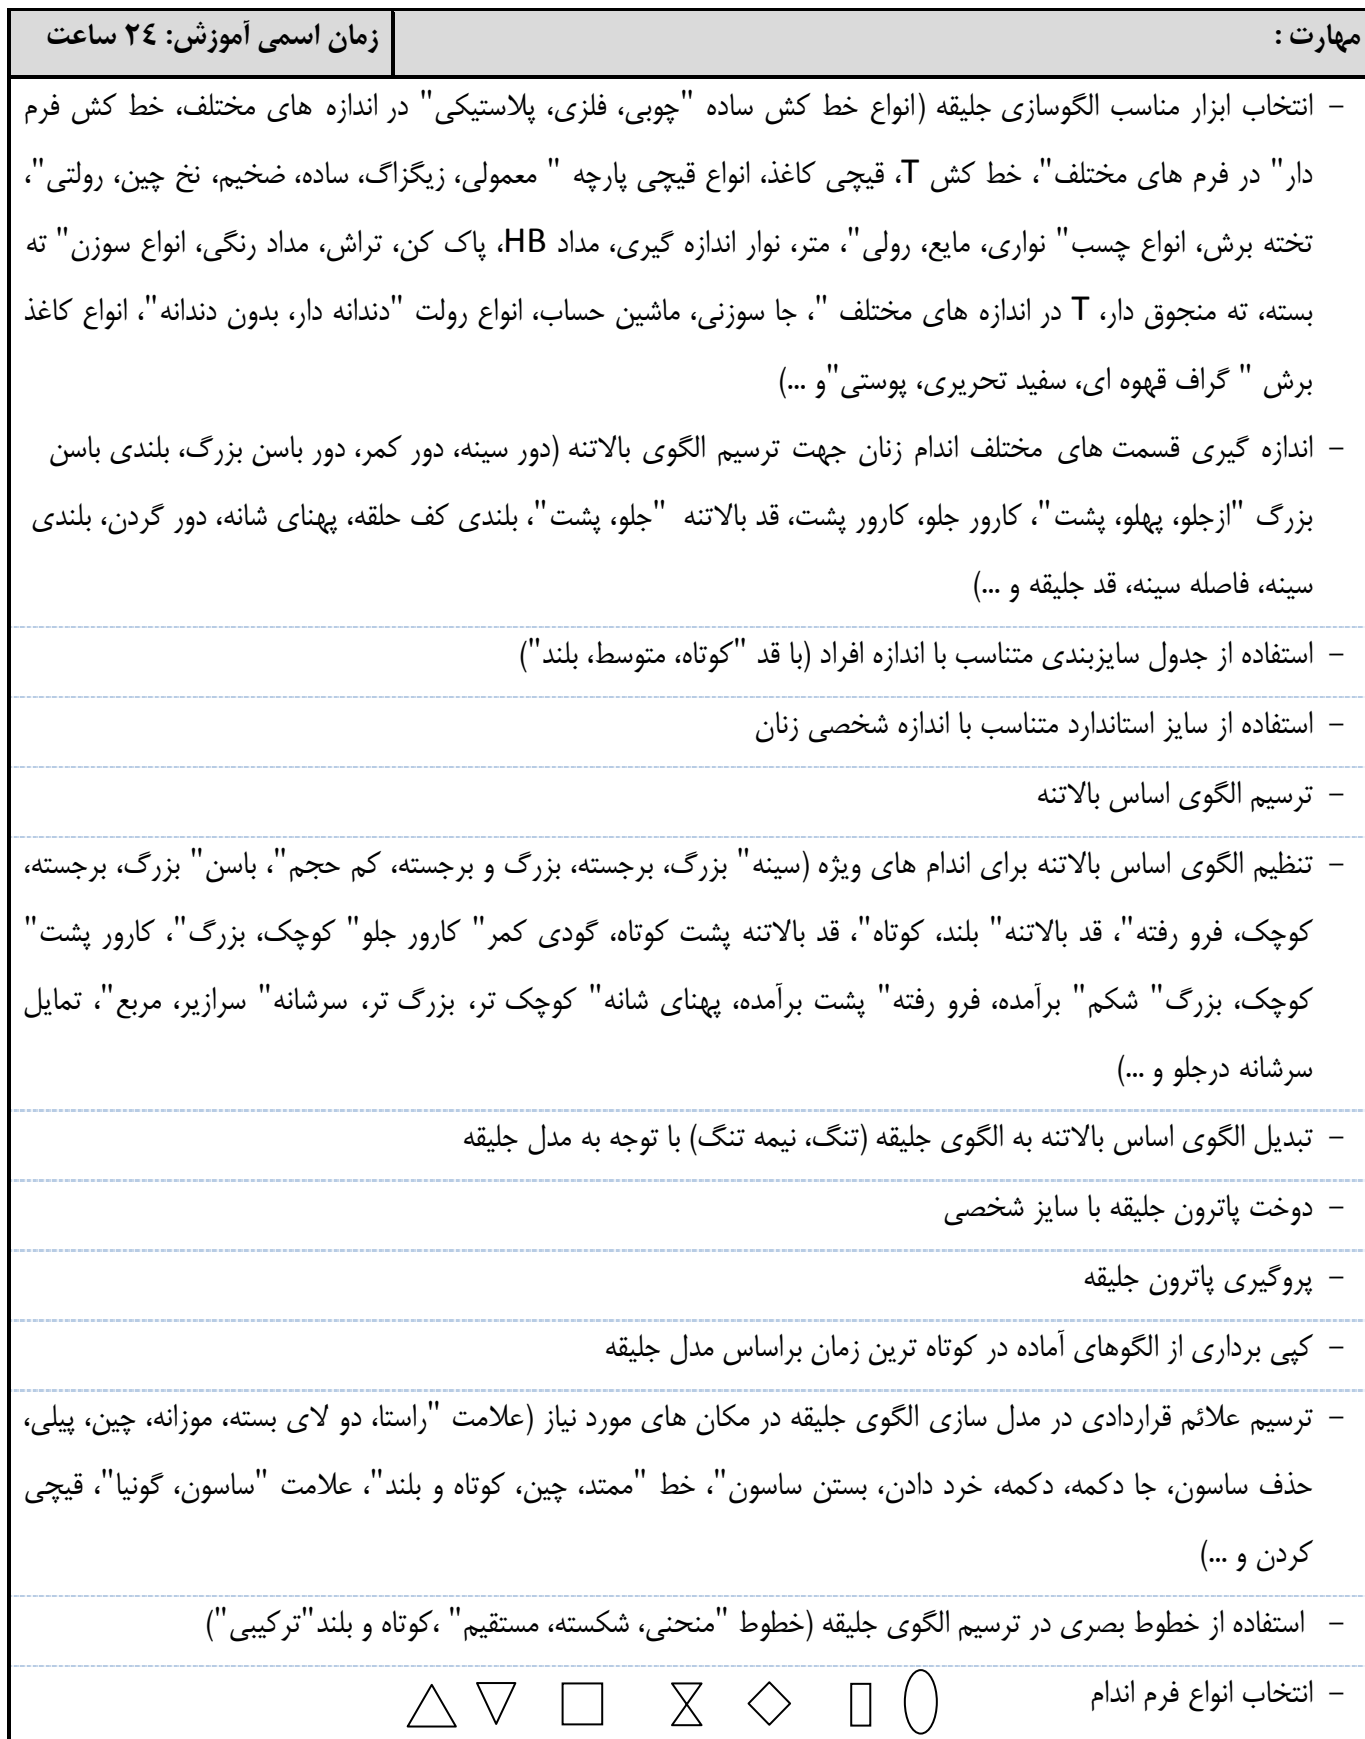 مهارت :
زمان اسمی آموزش: ٢٤ ساعت
- انتخاب ابزار مناسب الگوسازی جلیقه (انواع خط کش ساده "چوبی، فلزی، پلاستیکی" در اندازه های مختلف، خط کش فرم
دار" در فرم های مختلف"، خط کش T، قیچی کاغذ، انواع قیچی پارچه " معمولی، زیگزاگ، ساده، ضخیم، نخ چین، رولتی"،
تخته برش، انواع چسب" نواری، مایع، رولی"، متر، نوار اندازه گیری، مداد HB، پاک کن، تراش، مداد رنگی، انواع سوزن" ته
بسته، ته منجوق دار، T در اندازه های مختلف "، جا سوزنی، ماشین حساب، انواع رولت "دندانه دار، بدون دندانه"، انواع کاغذ
برش " گراف قهوه ای، سفید تحریری، پوستی"و ...)
- اندازه گیری قسمت های مختلف اندام زنان جهت ترسیم الگوی بالاتنه (دور سینه، دور کمر، دور باسن بزرگ، بلندی باسن
بزرگ "ازجلو، پهلو، پشت"، کارور جلو، کارور پشت، قد بالاتنه "جلو، پشت"، بلندی کف حلقه، پهنای شانه، دور گردن، بلندی
سینه، فاصله سینه، قد جلیقه و ...)
- استفاده از جدول سایزبندی متناسب با اندازه افراد (با قد "کوتاه، متوسط، بلند")
- استفاده از سایز استاندارد متناسب با اندازه شخصی زنان
- ترسیم الگوی اساس بالاتنه
- تنظیم الگوی اساس بالاتنه برای اندام های ویژه (سینه" بزرگ، برجسته، بزرگ و برجسته، کم حجم"، باسن" بزرگ، برجسته،
کوچک، فرو رفته"، قد بالاتنه" بلند، کوتاه"، قد بالاتنه پشت کوتاه، گودی کمر" کارور جلو" کوچک، بزرگ"، کارور پشت"
کوچک، بزرگ" شکم" برآمده، فرو رفته" پشت برآمده، پهنای شانه" کوچک تر، بزرگ تر، سرشانه" سرازیر، مربع"، تمایل
سرشانه درجلو و ...)
- تبدیل الگوی اساس بالاتنه به الگوی جلیقه (تنگ، نیمه تنگ) با توجه به مدل جلیقه
- دوخت پاترون جلیقه با سایز شخصی
- پروگیری پاترون جلیقه
- کپی برداری از الگوهای آماده در کوتاه ترین زمان براساس مدل جلیقه
- ترسیم علائم قراردادی در مدل سازی الگوی جلیقه در مکان های مورد نیاز (علامت "راستا، دو لای بسته، موزانه، چین، پیلی،
حذف ساسون، جا دکمه، دکمه، خرد دادن، بستن ساسون"، خط "ممتد، چین، کوتاه و بلند"، علامت "ساسون، گونیا"، قیچی
کردن و ...)
- استفاده از خطوط بصری در ترسیم الگوی جلیقه (خطوط "منحنی، شکسته، مستقیم" ،کوتاه و بلند"ترکیبی")
- انتخاب انواع فرم اندام